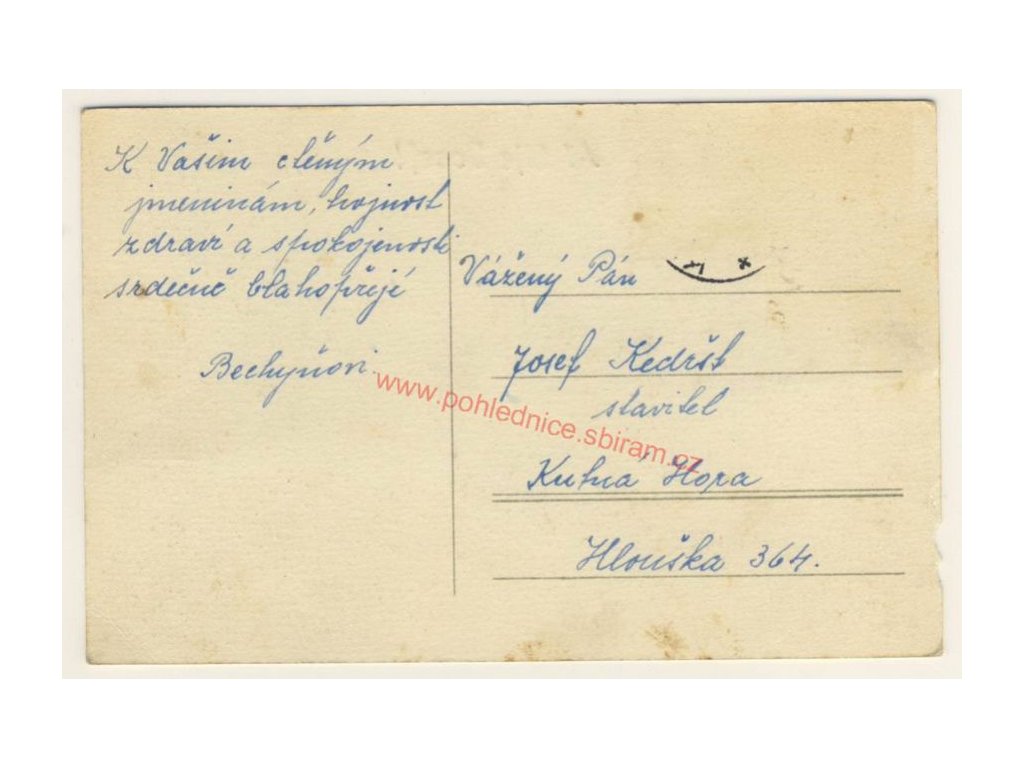 K Vašim ctěným
jmeninám, hojnost
zdraví a spokojenosti
srdečně blahopřejí
Bechyňovi.
Vážený Pán
Josef Kedršt
stavitel
Kutná Hora
Hlouška 364.
www.pohlednice.sbiram.cz